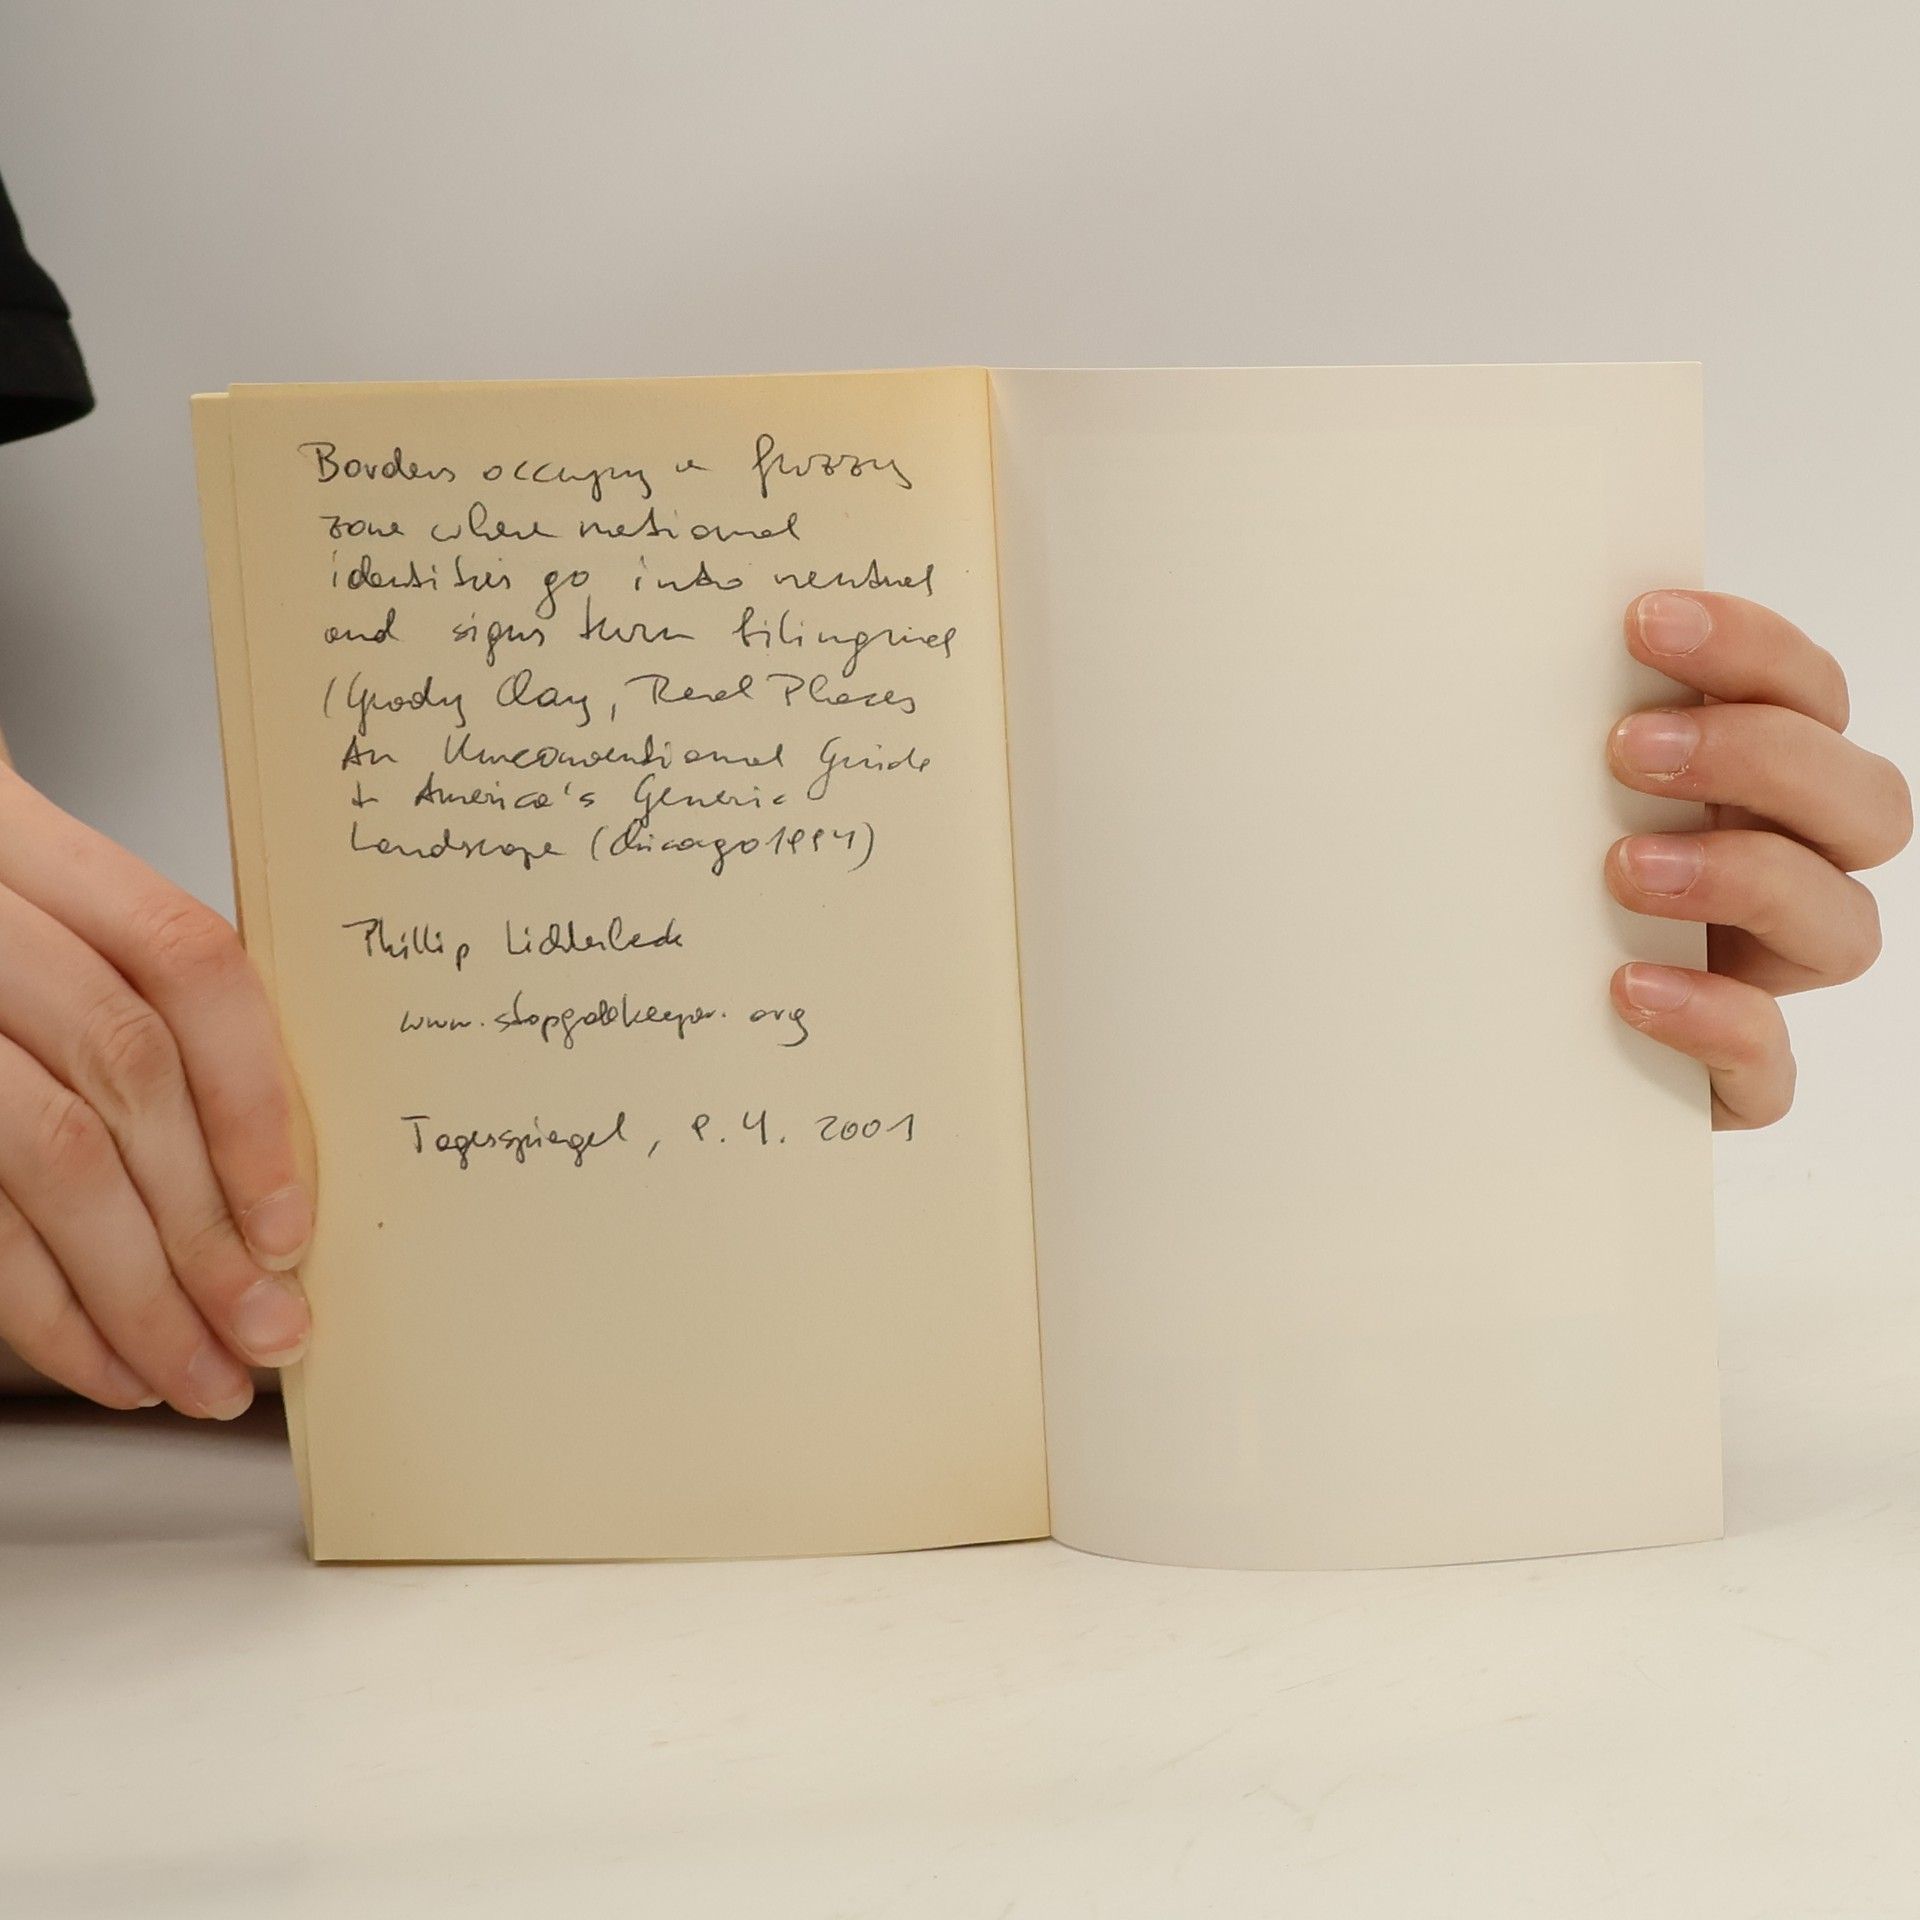 Borders occupy a fuzzy
zone where national
identities go into neutral
and signs turn bilingual
(Grady Clay, Real Places
An Unconventional Guide
t America's Generic
Landscape (Chicago 1994)
Phillip Lichterbeck
www.stopgoalkeeper.org
Tagesspiegel, 9. 4. 2001